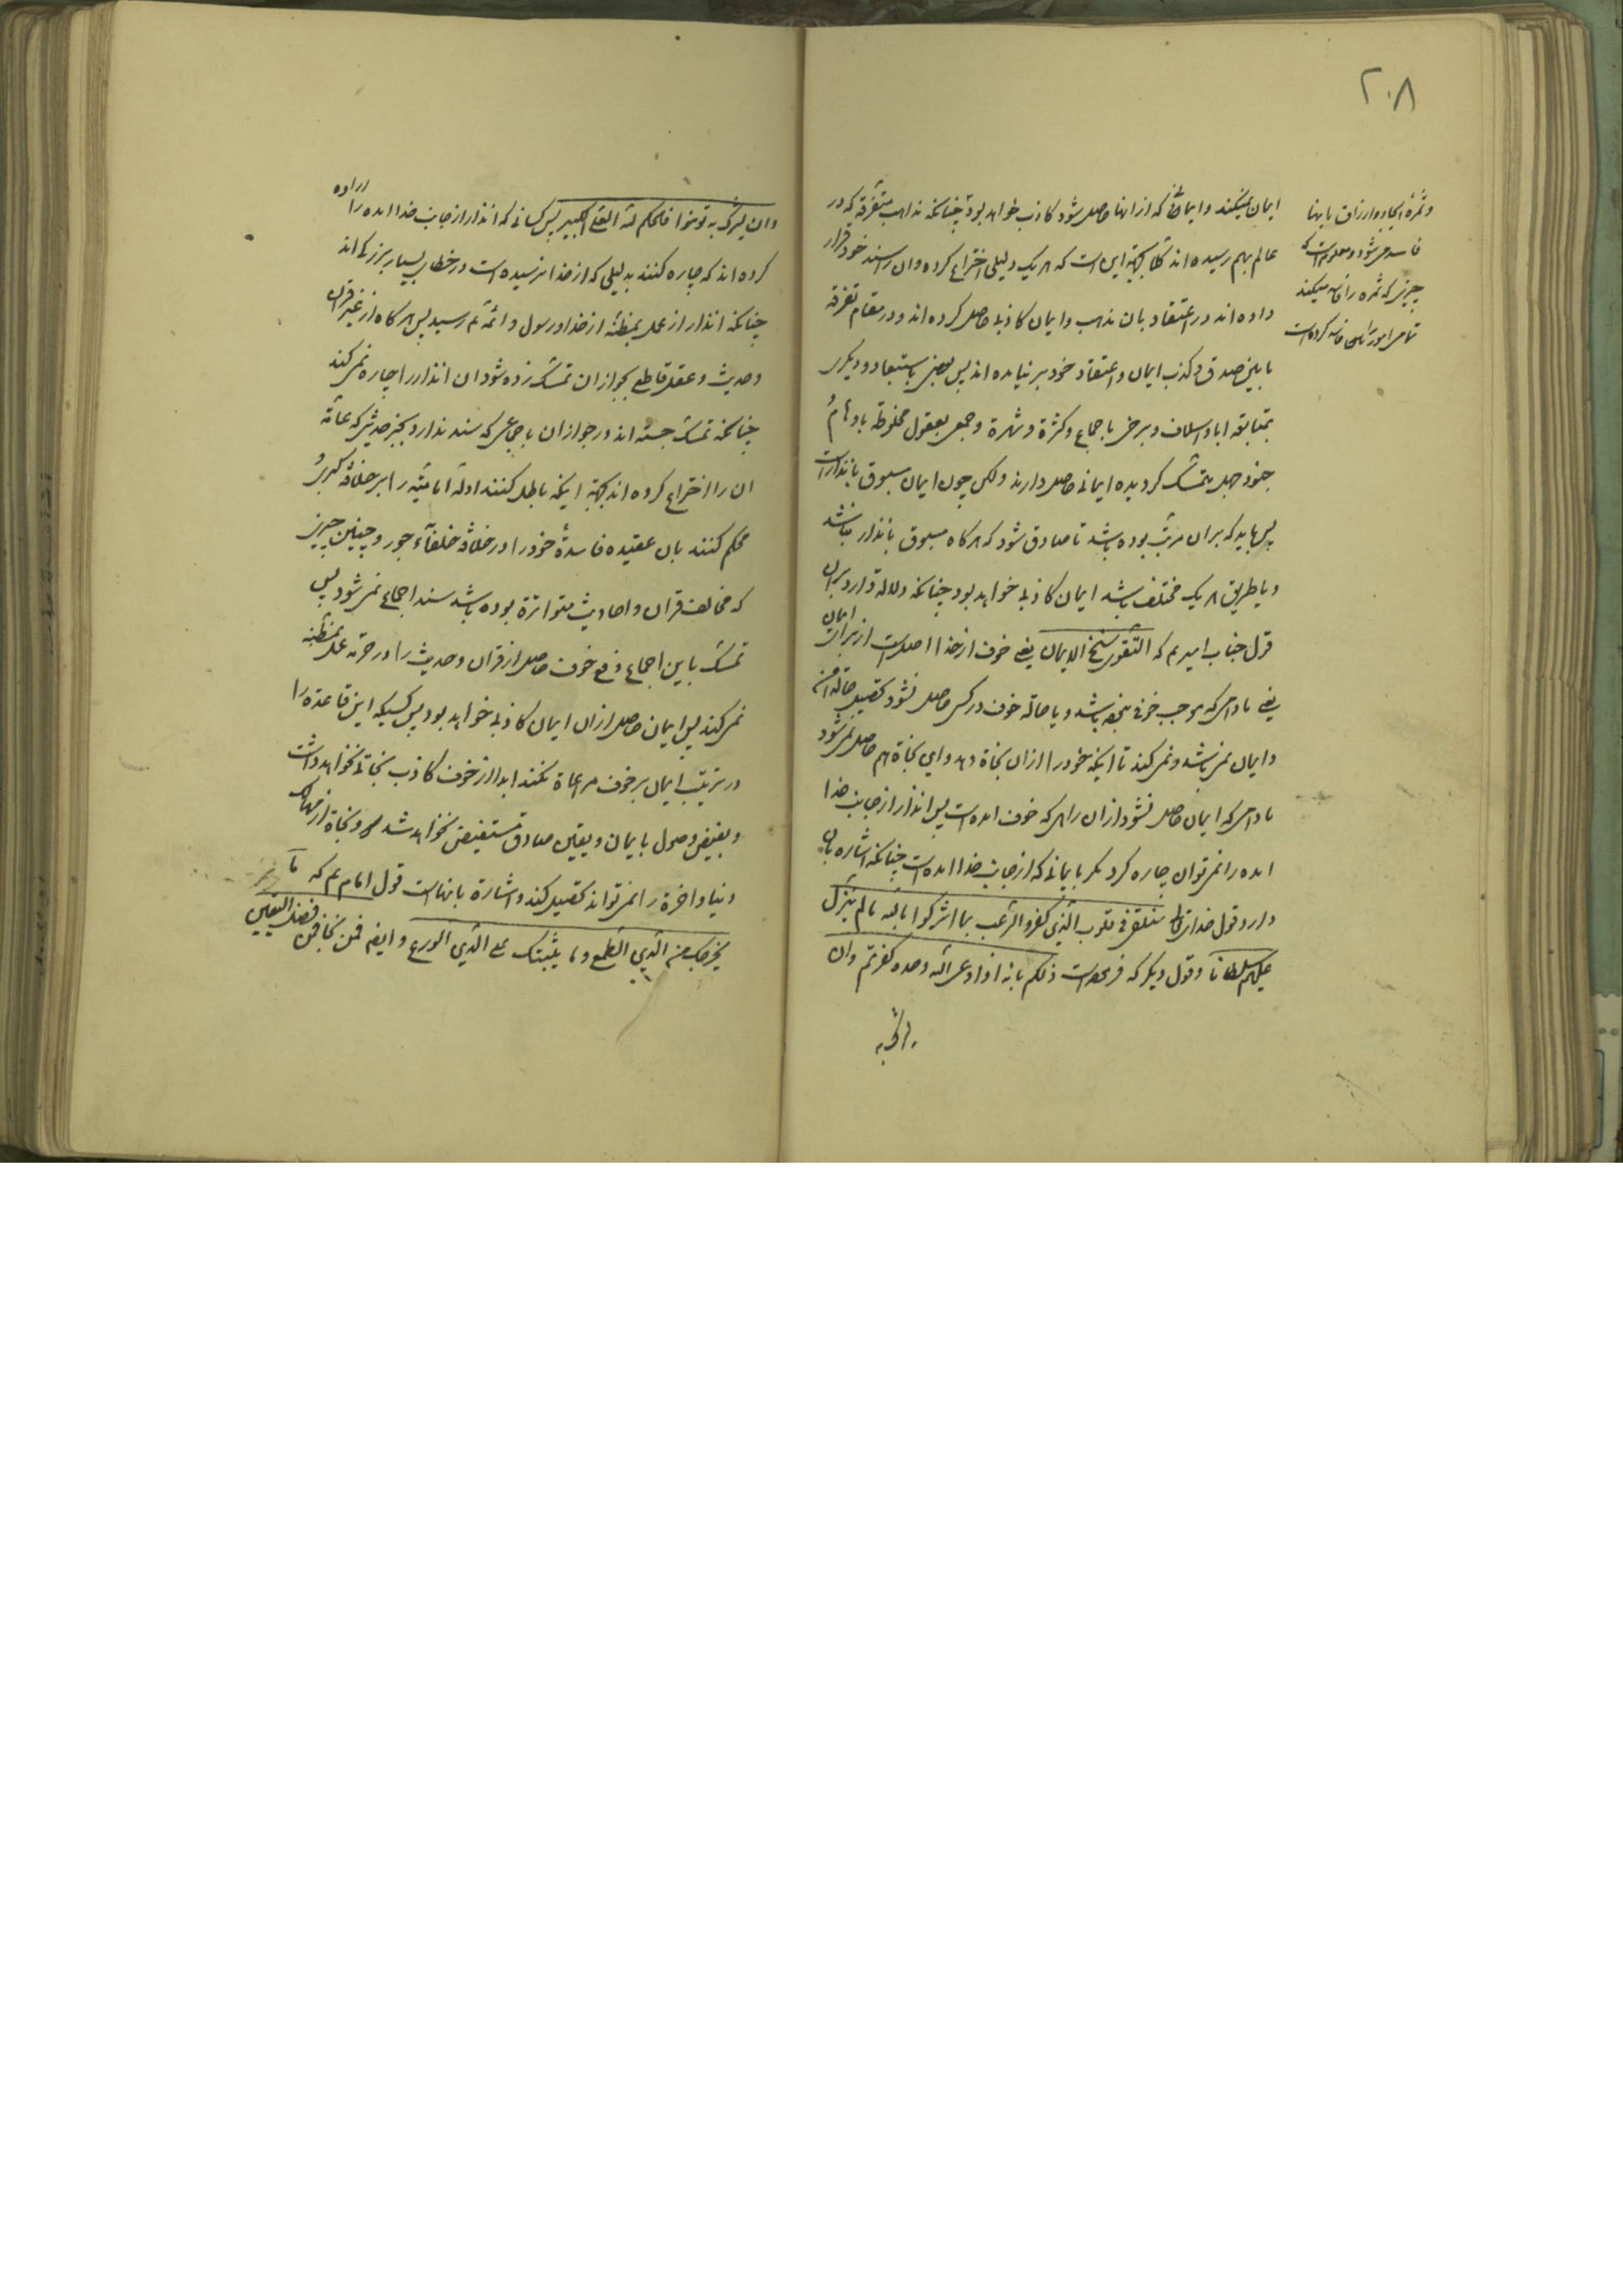 ۲۰۸
وثمره ایجاد و ارزاق بانها
فاسد میشود و معلوم است که
چیزی که ثمره را فاسد میکند
تمام امور را فاسد کرده است
ایمان نمیکنند و ایمانی که از انها حاصل شود کاذب خواهد بود چنانکه مذاهب متفرقه که در
عالم بهم رسیده اند بجهة این است که هر یک دلیلی اختراع کرده و ان را سند خود قرار
داده اند در اعتقاد بان مذهب و ایمان کاذبی حاصل کرده اند و در مقام تفرقه
مابین صدق و کذب ایمان و اعتقاد خود برنیامده اند پس بعضی باستبعاد و دیگری
بمتابعة اباء و اسلاف و برخی باجماع و کثرة و شهرة و جمعی بعقول مخلوطه باوهام
جنود جهل متمسک گردیده ایمانی حاصل دارند ولکن چون ایمان مسبوق بانذار است
پس باید که بران مرتب بوده باشد تا صادق شود که هرگاه مسبوق بانذار نباشد
و یا طریق هر یک مختلف باشد ایمان کاذبی خواهد بود چنانکه دلالة دارد بران
قول جناب امیر عم که التقوی سنخ الایمان یعنی خوف از خدا اصل است از برای ایمان
یعنی مادامی که موجب خوفی نباشد و یا حالة خوف در کسی حاصل نشود تحصیل حالة امن
و ایمان نمیباشد و نمیکند تا اینکه خود را ازان نجاة دهد و این نجاة هم حاصل نمیشود
مادامی که ایمان حاصل نشود ازان راهی که خوف امده است پس انذار از جانب خدا
امده را نمیتوان چاره کرد مگر بایمانی که از جانب خدا امده است چنانکه اشاره بان
دارد قول خدایتعالی سنلقی فی قلوب الذین کفروا الرعب بما اشرکوا بالله ما لم ینزل
علیهم سلطانا و قول دیگر که فرموده است ذلکم بانه اذا دعی الله وحده کفرتم وان
یشرک به
وان یشرک به تؤمنوا فالحکم لله العلی الکبیر پس کسانی که انذار از جانب خدا امده را اراده
کرده اند که چاره کنند بدلیلی که از خدا نرسیده است در خطای بسیار بزرگی اند
چنانکه انذار از عمل بمظنه از خدا و رسول و ائمه عم رسید پس هرگاه از غیر قران
وحدیث و عقل قاطع بجواز ان تمسک زده شود ان انذار را چاره نمیکند
چنانکه تمسک جسته اند در جواز ان باجماعی که سند ندارد بجز حدیثی که عامه
ان را اختراع کرده اند بجهة اینکه باطل کنند ادله امامیه را بر خلافة کبری و
محکم کنند بان عقیده فاسدهٔ خود را در خلافة خلفآء جور و چنین چیزی
که مخالف قران و احادیث متواترة بوده باشد سند اجماع نمیشود پس
تمسک باین اجماع دفع خوف حاصل از قران وحدیث را در حرمة عمل بمظنه
نمیکند پس ایمان حاصل ازان ایمان کاذبی خواهد بود پس کسیکه این قاعده را
در ترتیب ایمان بر خوف مراعاة نکند ابدا از خوف کاذب نجاتی نخواهد داشت
و بفیض وصول بایمان و یقین صادق مستفیض نخواهد شد و نجاة از مهالک
دنیا و اخرة را نمیتواند تحصیل کند و اشارة بانهاست قول امام عم که ما
یخرجک من الذی الطمع و ما یثبتک علی الذی الورع و ایضا فمن نجا فمن فضل الیقین